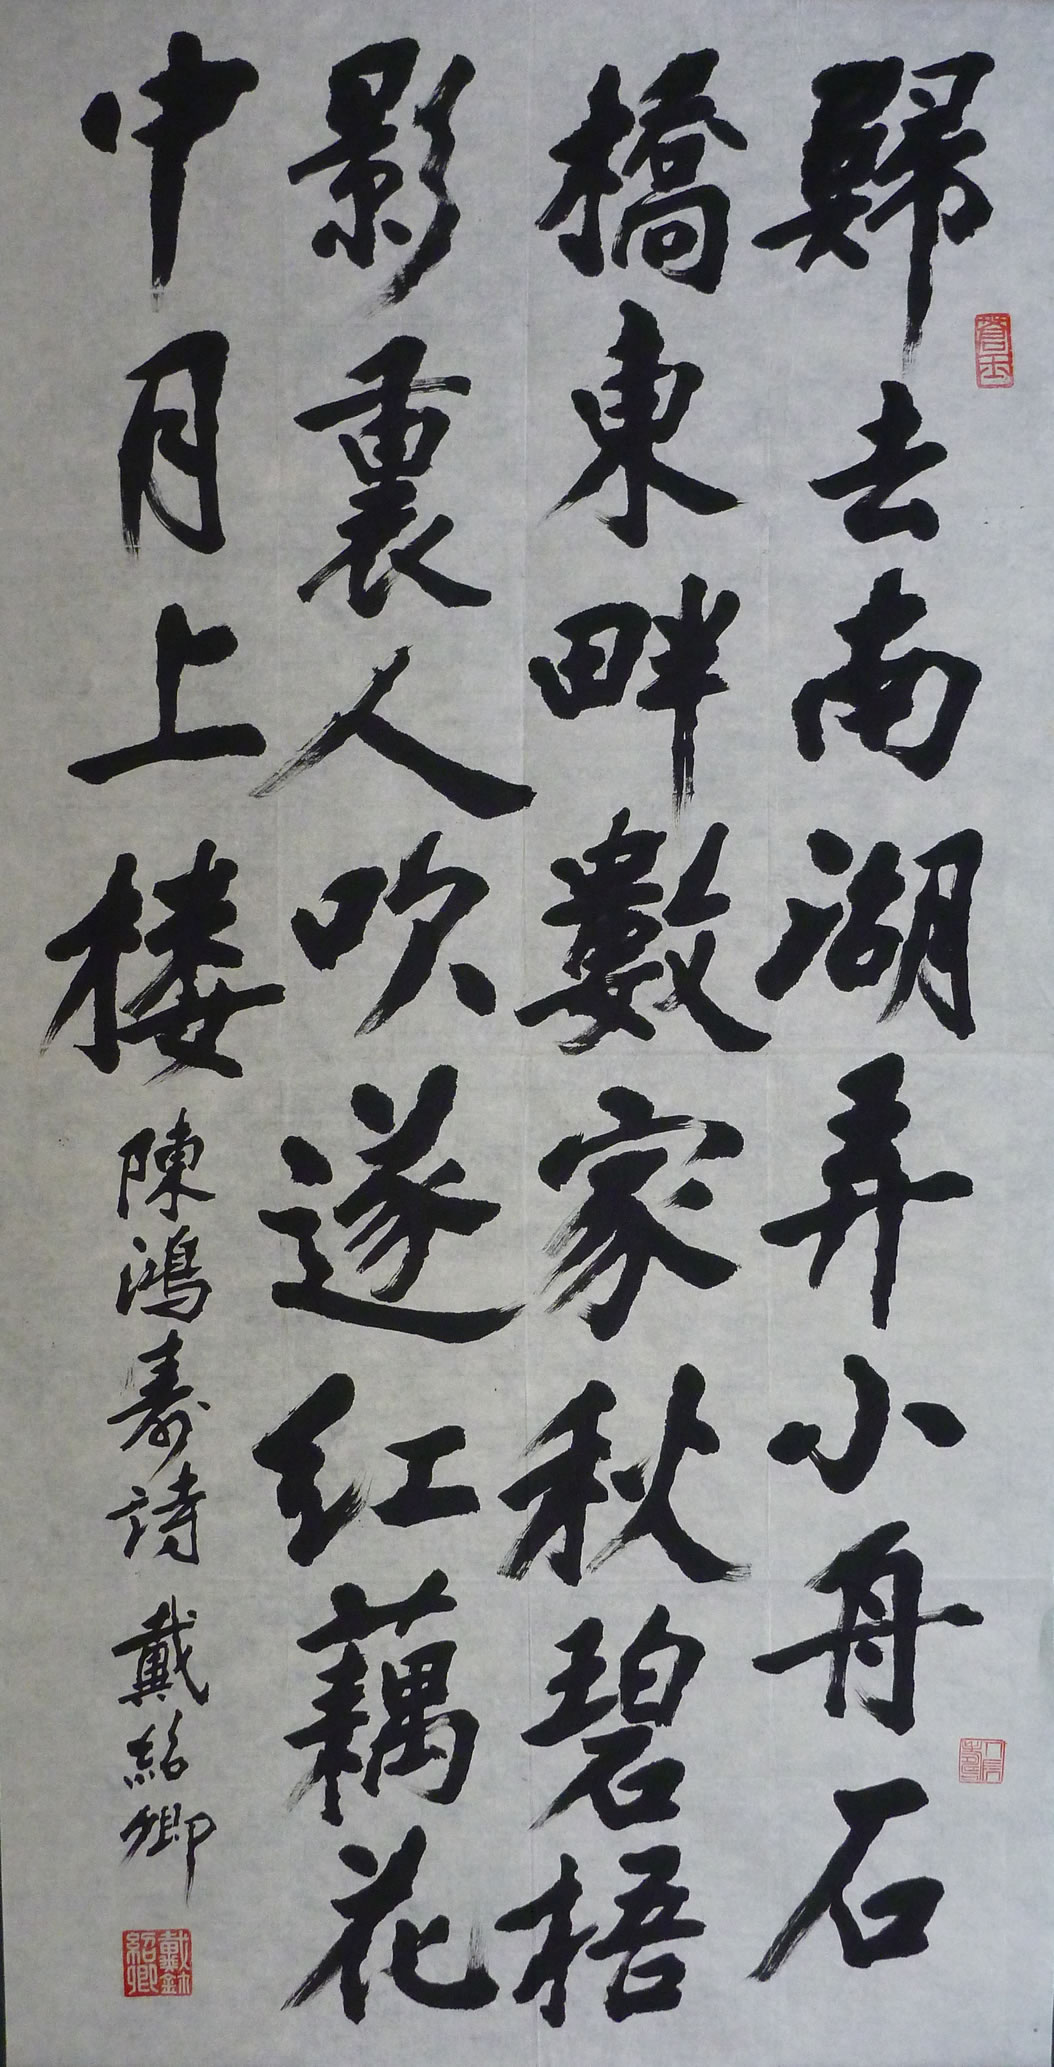 歸去南湖弄小舟石
橋東畔數家秋碧梧
影裏人吹遂红藕花
中月上楼
陳鴻壽詩 戴紹卿
戴紹卿鉥